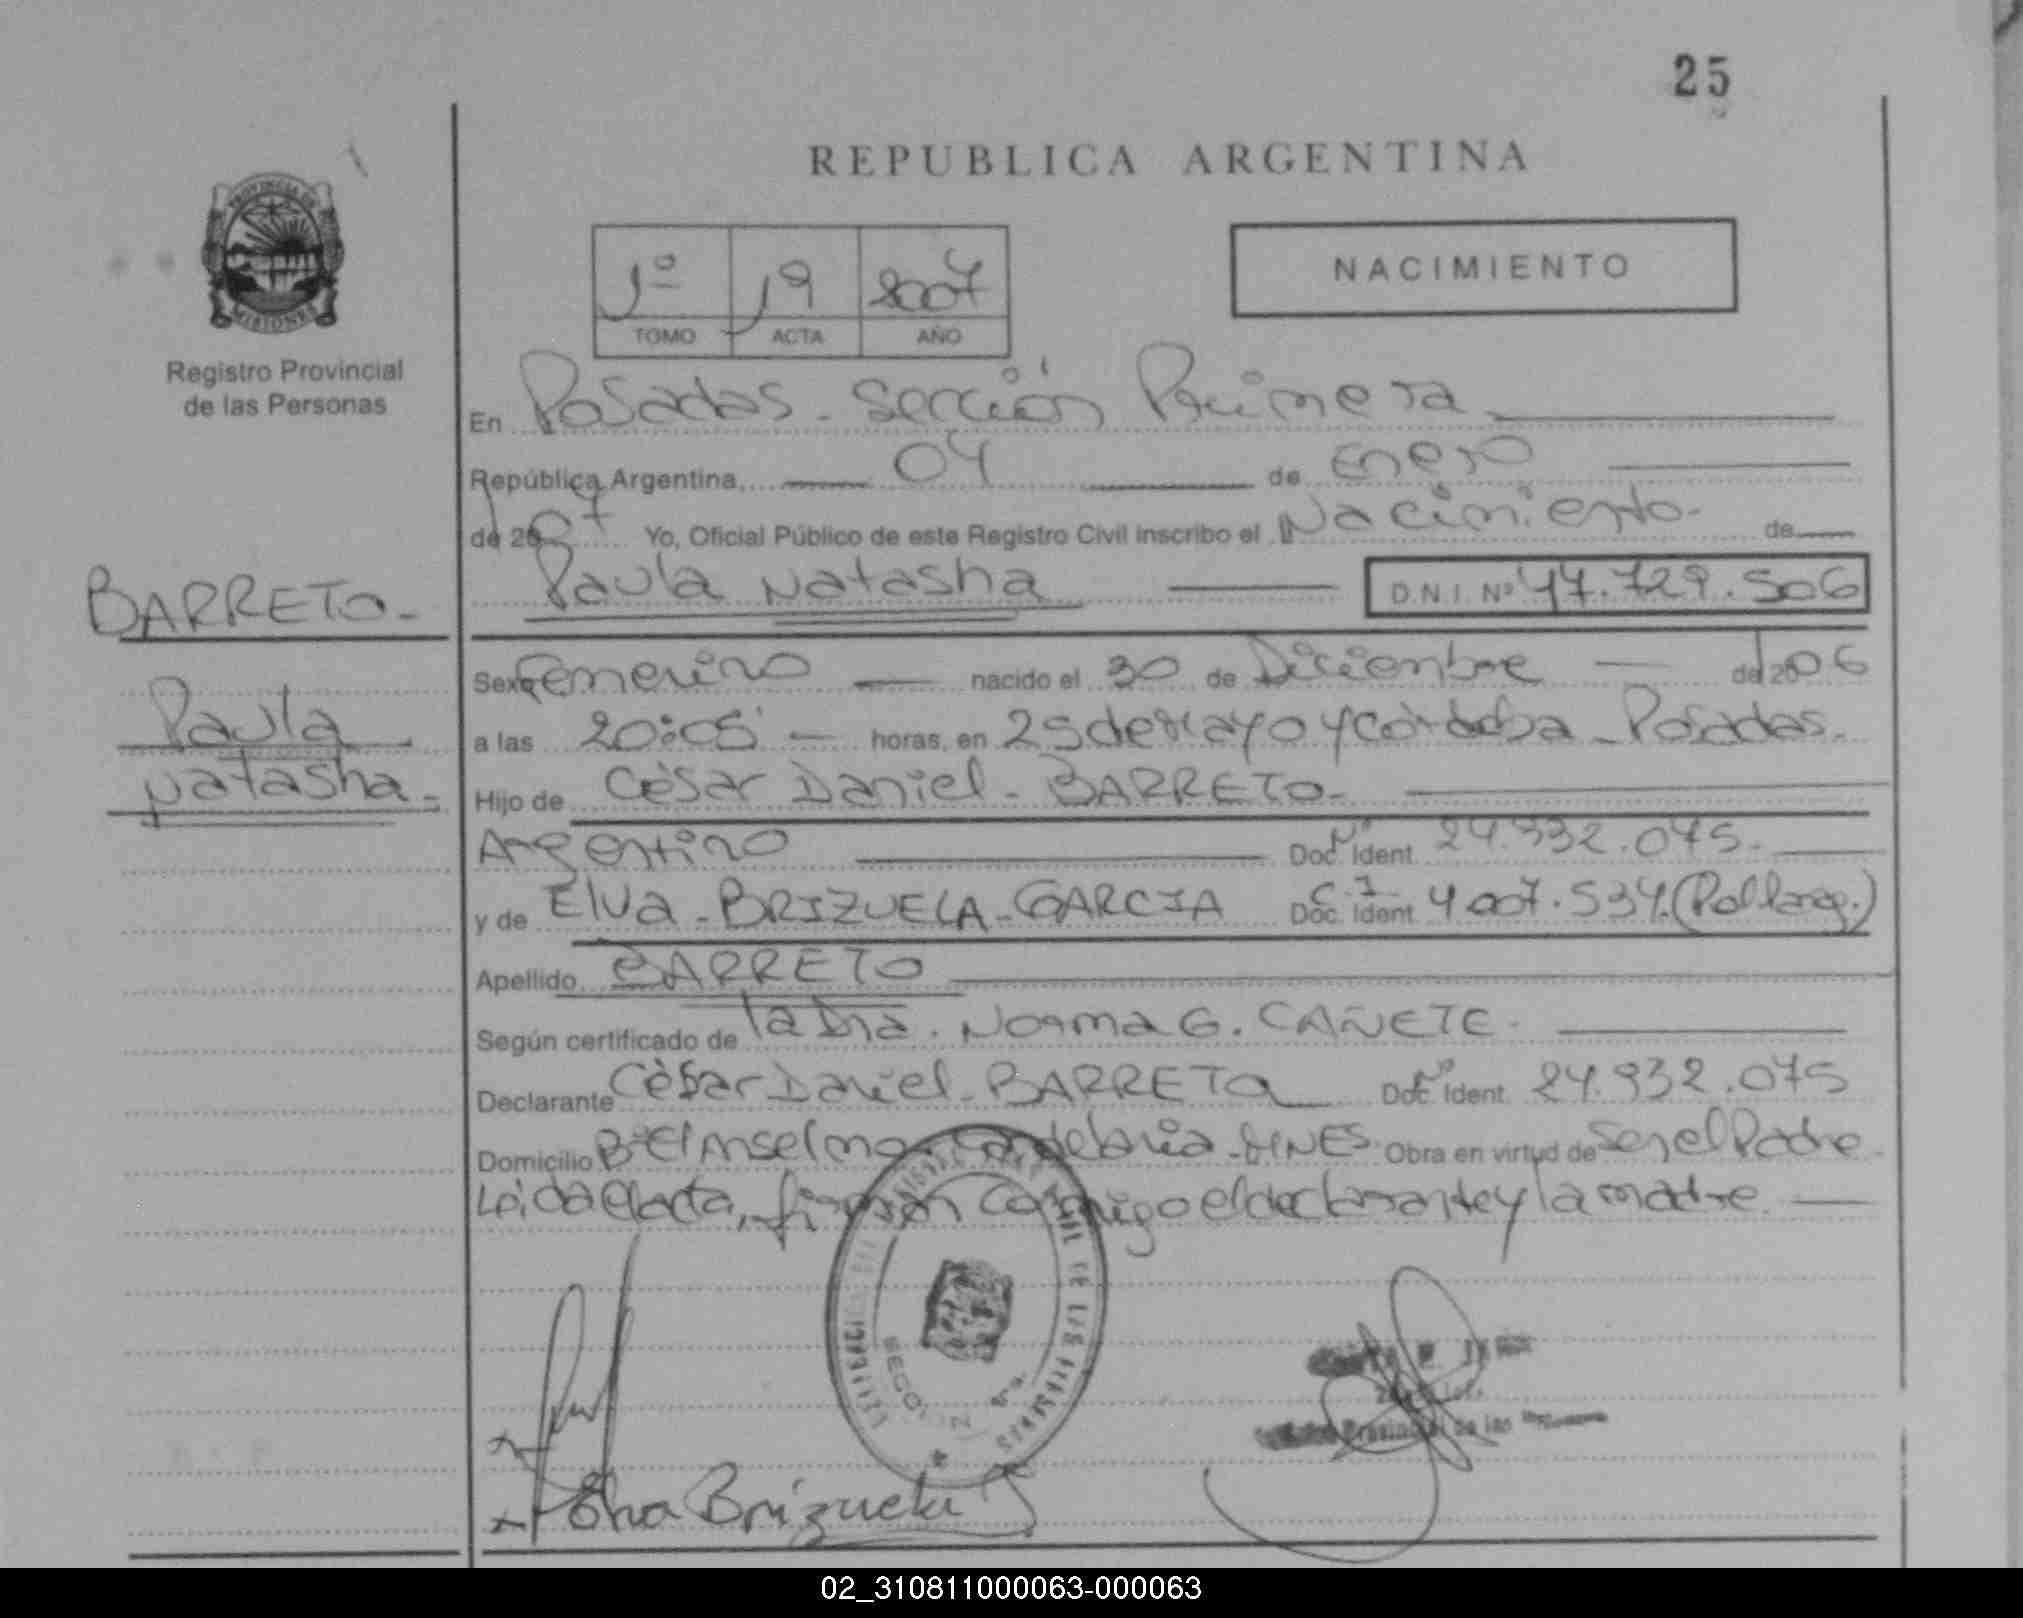 25
REPUBLICA ARGENTINA
PROVINCIA DE
MISIONES
Registro Provincial
de las Personas
1º 19 2007
TOMO ACTA AÑO
NACIMIENTO
En Posadas - Sección Primera
República Argentina, 04 de Enero
de 2007 Yo, Oficial Público de este Registro Civil inscribo el Nacimiento - de
Paula Natasha D.N.I. Nº 47.729.506
BARRETO -
Paula
Natasha -
Sexo Femenino nacido el 30 de Diciembre de 2006
a las 20:05 - horas, en 25 de Mayo y Córdoba - Posadas.
Hijo de César Daniel - BARRETO -
Argentino Doc. Ident. Nº 24.932.075.
y de Elva - BRIZUELA - GARCIA Doc. Ident. C.I. 4007.534.
Apellido BARRETO
Según certificado de la Dra. Norma G. CAÑETE -
Declarante César Daniel - BARRETO Doc. Ident. Nº 24.932.075
Domicilio Bº El Anselmo - Candelaria - MNES. Obra en virtud de Ser el Padre -
Leída el acta, firman conmigo el declarante y la madre.
Elva Brizuela
02_310811000063-000063